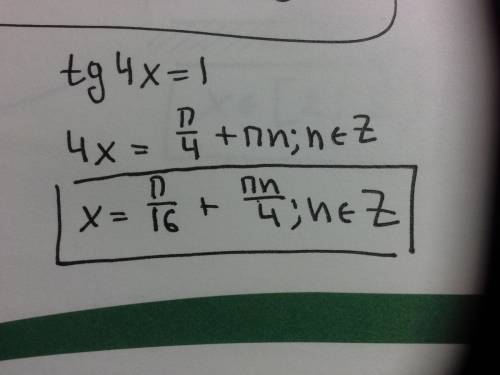 tg 4x = 1
4x = π/4 + πn; n ∈ Z
x = π/16 + πn/4; n ∈ Z